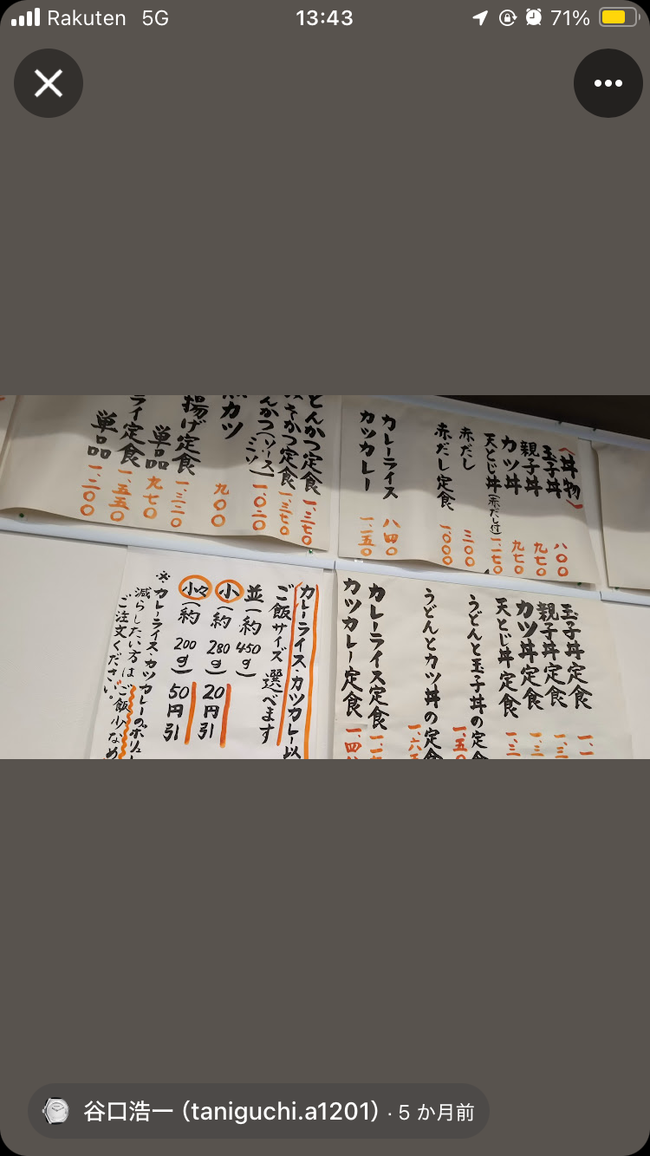 Rakuten 5G
13:43
71%
〈丼物〉
玉子丼 八〇〇
親子丼 九七〇
カツ丼 九七〇
天とじ丼(赤だし付) 一、一七〇
赤だし 三〇〇
赤だし定食 一、〇〇〇
カレーライス 八四〇
カツカレー 一、一五〇
とんかつ定食 一、三七〇
みそかつ定食 一、三七〇
んかつ(ソース)(ミソ) 一、〇二〇
カツ 九〇〇
揚げ定食 一、三二〇
単品 九七〇
ライ定食 一、五五〇
単品 一、二〇〇
玉子丼定食
親子丼定食
カツ丼定食
天とじ丼定食
うどんと玉子丼の定食
うどんとカツ丼の定食
カレーライス定食
カツカレー定食
カレーライス・カツカレー以
ご飯サイズ選べます
並(約450g)
小(約280g) 20円引
小々(約200g) 50円引
※カレーライス・カツカレーのボリュー
減らしたい方はご飯少なめ
ご注文ください。
谷口浩一 (taniguchi.a1201) · 5 か月前